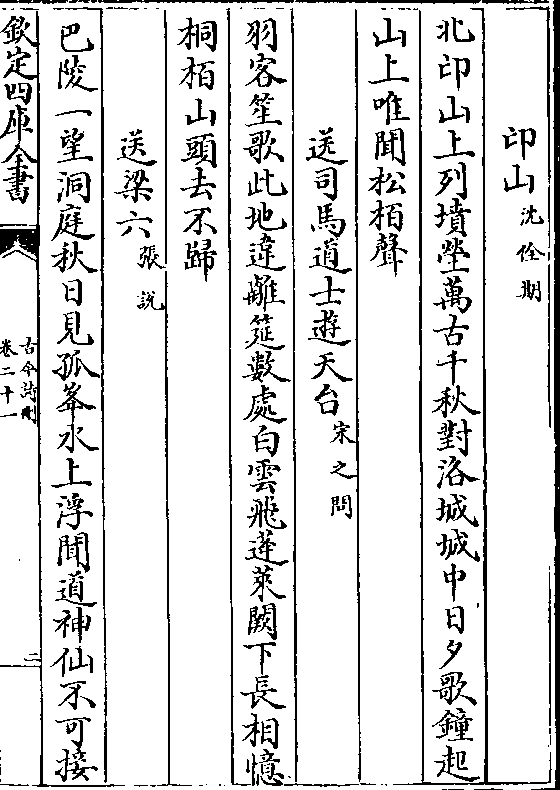 印山沈佺期
北印山上列墳塋萬古千秋對洛城城中日夕歌鐘起
山上唯聞松栢聲
送司馬道士遊天台宋之問
羽客笙歌此地違離筵數處白雲飛蓬萊闕下長相憶
桐栢山頭去不歸
送梁六張說
巴陵一望洞庭秋日見孤峯水上浮聞道神仙不可接
欽定四庫全書
古今詩刪
卷二十一
二